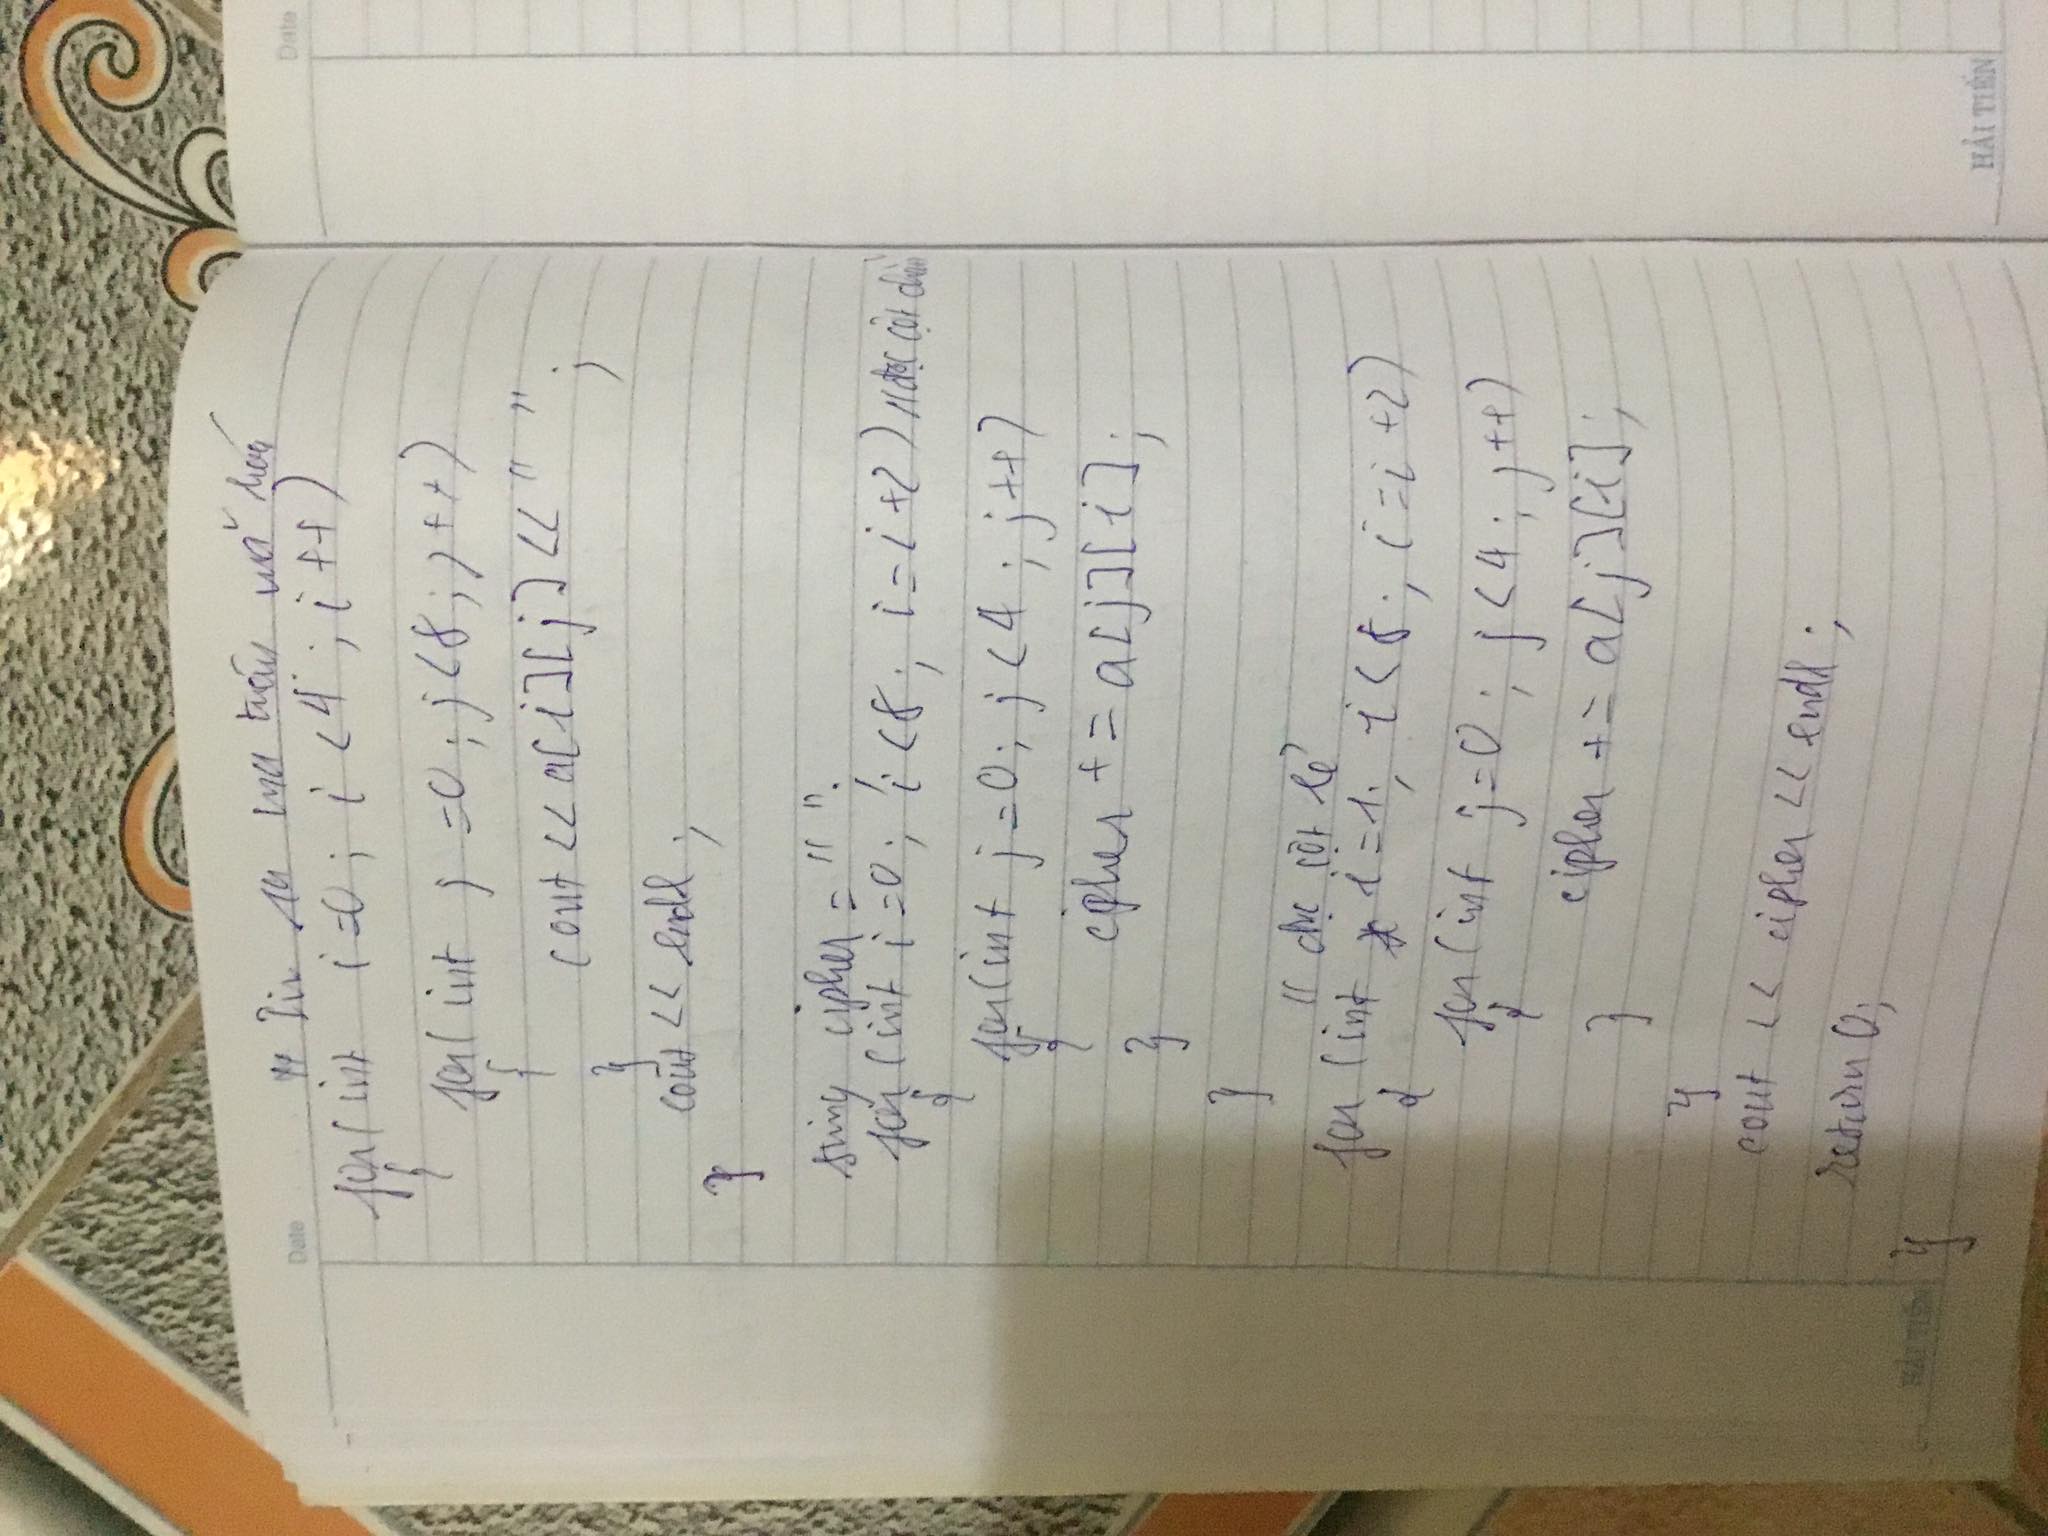 Date
Date
// In ra ma trận mã hoá
for(int i=0; i<4; i++)
{
for(int j=0; j<8; j++)
{
cout << a[i][j] << " ";
}
cout << endl;
}
string cipher = " ";
for(int i=0; i<8; i=i+2) //đọc cột chẵn
{
for(int j=0; j<4; j++)
{
cipher += a[j][i];
}
}
// đọc cột lẻ
for (int i=1; i<8; i=i+2)
{
for(int j=0; j<4; j++)
{
cipher += a[j][i];
}
}
cout << cipher << endl;
return 0;
}
HẢI TIẾN
HẢI TIẾN